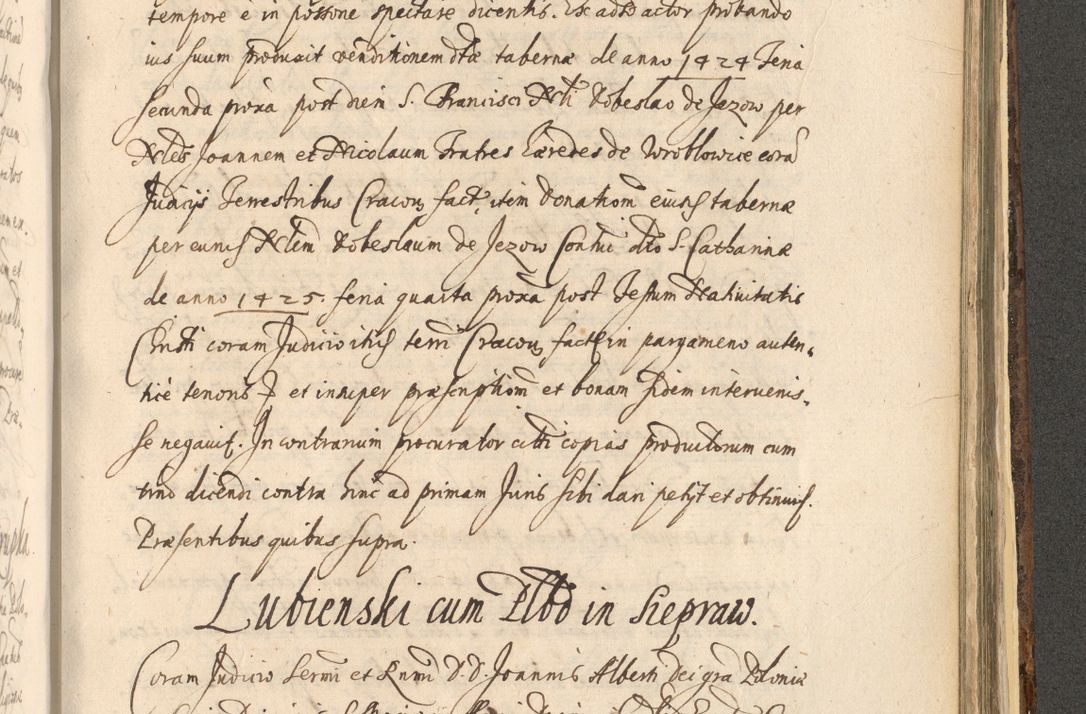 tempore è in possone spectare dicentis. Ex adto actor probando
ius suum produxit venditionem dtæ tabernæ de anno 1424 Feria
secunda proxa post diem S. Francisci Nli Dobeslao de Jezow per
Nles Joannem et Nicolaum Fratres Hæredes de Wroblowice cora
Judicijs Terrestribus Cracou fact, item Donationem eiusd tabernæ
per eund Nlem Dobeslaum de Jezow Contui dto S. Catharinæ
de anno 1425. feria quarta proxa post Festum Natiuitatis
Christi coram Judicio itid terri Cracou fact in pargameno auten-
ticè tenoris et insuper præscriptiom et bonam fidem interuenis-
se negauit. In contrarium procurator citti copias productorum cum
tmo dicendi contra hinc ad primam Juris sibi dari petijt et obtinuit.
Præsentibus quibus supra.
Lubienski cum Plbo in Siepraw.
Coram Judicio Sermi et Rnmi D. D. Joannis Alberti Dei gra Poloniæ